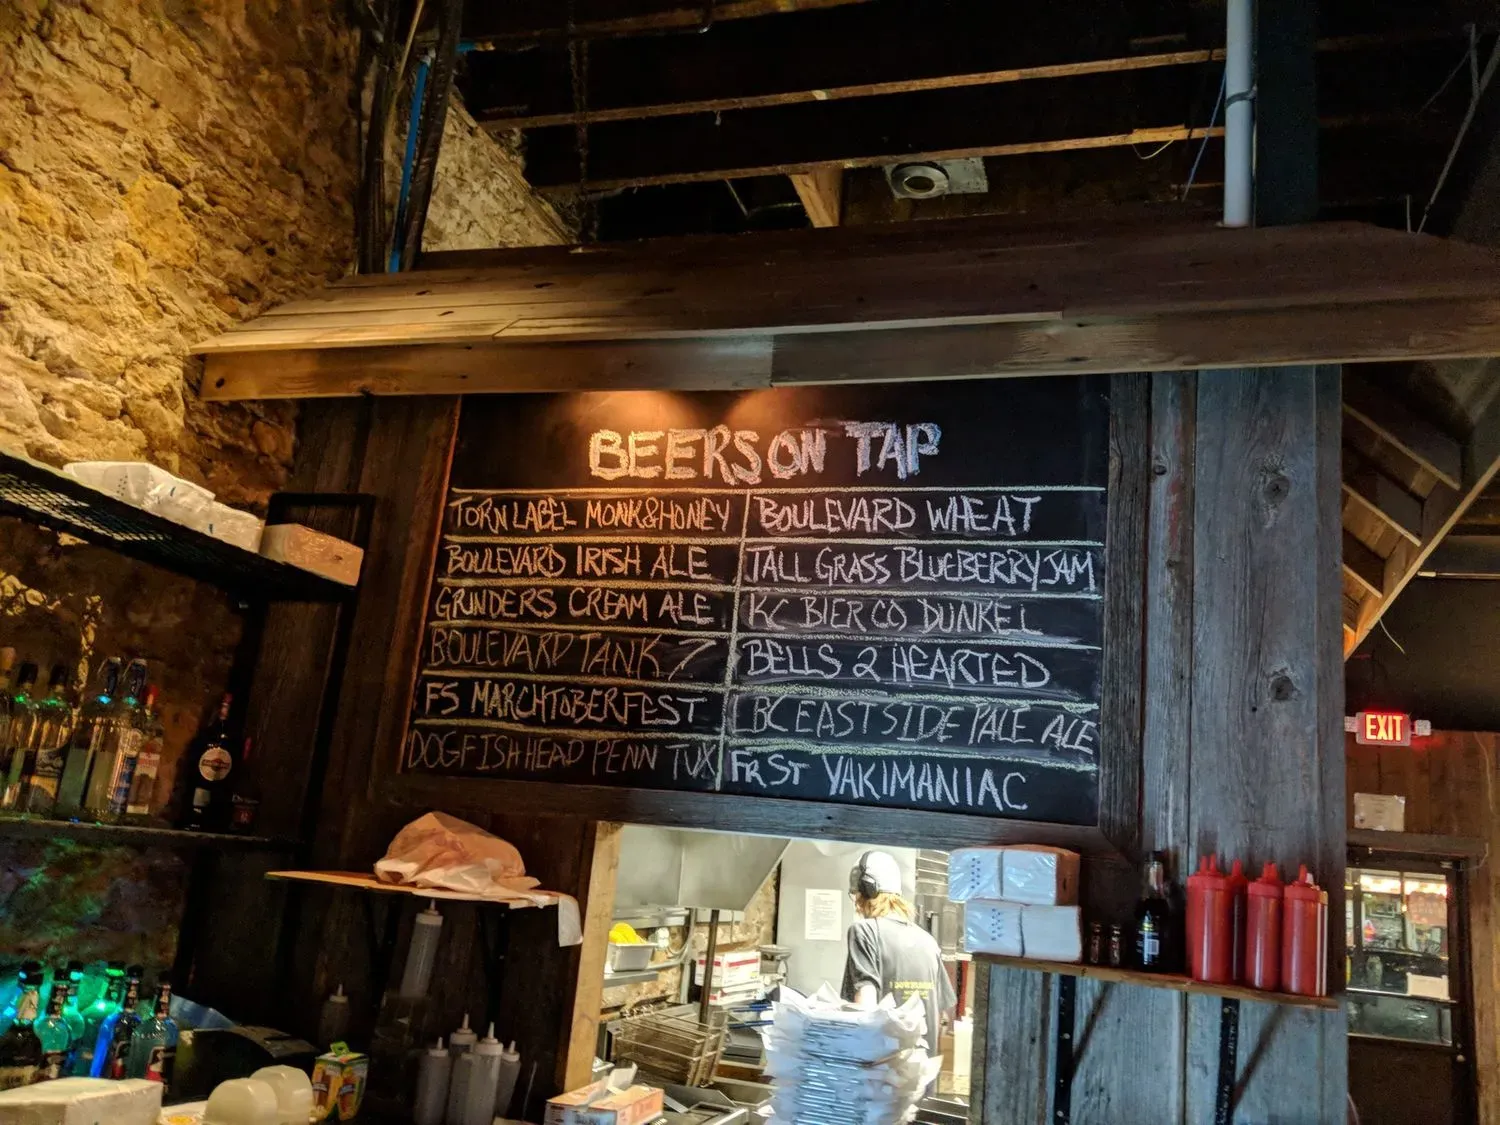 BEERS ON TAP
TORN LABEL MONK & HONEY
BOULEVARD IRISH ALE
GRINDERS CREAM ALE
BOULEVARD TANK 7
FS MARCHTOBERFEST
DOGFISH HEAD PENN TUX
BOULEVARD WHEAT
TALL GRASS BLUEBERRY JAM
KC BIER CO DUNKEL
BELLS 2 HEARTED
BC EAST SIDE PALE ALE
FR ST YAKIMANIAC
EXIT